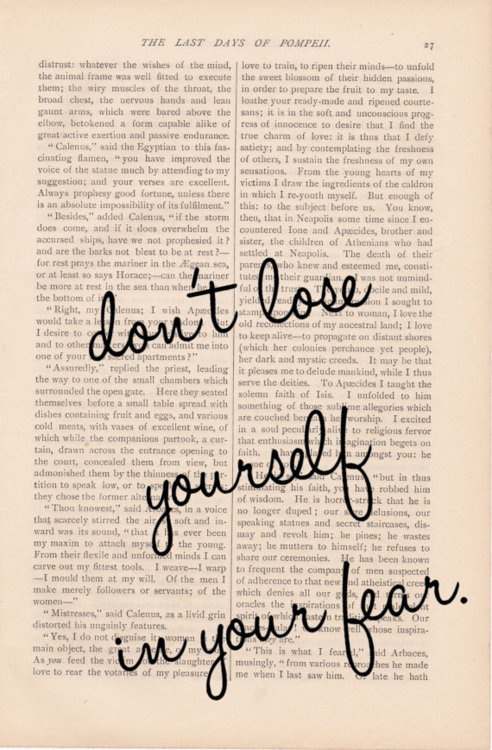 THE LAST DAYS OF POMPEII. 27
distrust: whatever the wishes of the mind,
the animal frame was well fitted to execute
them; the wiry muscles of the throat, the
broad chest, the nervous hands and lean
gaunt arms, which were bared above the
elbow, betokened a form capable alike of
great active exertion and passive endurance.
"Calenus," said the Egyptian to this fas-
cinating flamen, "you have improved the
voice of the statue much by attending to my
suggestion; and your verses are excellent.
Always prophesy good fortune, unless there
is an absolute impossibility of its fulfilment."
"Besides," added Calenus, "if the storm
does come, and if it does overwhelm the
accursed ships, have we not prophesied it?
and are the barks not blest to be at rest?—
for rest prays the mariner in the Ægean sea,
or at least so says Horace;—can the mariner
be more at rest in the sea than when he
the bottom of
"Right, my Calenus; I wish
would take a
I desire to
and to other can admit me into
one of your sacred apartments?"
"Assuredly," replied the priest, leading
the way to one of the small chambers which
surrounded the open gate. Here they seated
themselves before a small table spread with
dishes containing fruit and eggs, and various
cold meats, with vases of excellent wine, of
which while the companions partook, a cur-
tain, drawn across the entrance opening to
the court, concealed them from view, but
admonished them by the thinness of the par-
tition to speak low, or to
they chose the former
"Thou knowest," said in a voice
that scarcely stirred the air, so soft and in-
ward was its sound, "that it has ever been
my maxim to attach myself to the young.
From their flexile and unformed minds I can
carve out my fittest tools. I weave—I warp
—I mould them at my will. Of the men I
make merely followers or servants; of the
women—"
"Mistresses," said Calenus, as a livid grin
distorted his ungainly features.
"Yes, I do not disguise it, woman is the
main object, the great
As you feed the slaughter,
love to rear the votaries of my pleasure.
love to train, to ripen their minds—to unfold
the sweet blossom of their hidden passions,
in order to prepare the fruit to my taste. I
loathe your ready-made and ripened courte-
sans; it is in the soft and unconscious prog-
ress of innocence to desire that I find the
true charm of love: it is thus that I defy
satiety; and by contemplating the freshness
of others, I sustain the freshness of my own
sensations. From the young hearts of my
victims I draw the ingredients of the caldron
in which I re-youth myself. But enough of
this: to the subject before us. You know,
then, that in Neapolis some time since I en-
countered Ione and Apæcides, brother and
sister, the children of Athenians who had
settled at Neapolis. The death of their
parents, who knew and esteemed me, consti-
tuted me their guardian. I was not unmind-
ful of the trust. The docile and mild,
yielded readily I sought to
stamp Next to woman, I love the
old recollections of my ancestral land; I love
to keep alive—to propagate on distant shores
(which her colonies perchance yet people),
her dark and mystic creeds. It may be that
it pleases me to delude mankind, while I thus
serve the deities. To Apæcides I taught the
solemn faith of Isis. I unfolded to him
something of those sublime allegories which
are couched beneath her worship. I excited
in a soul peculiarly alive to religious fervor
that enthusiasm which imagination begets on
faith. I have placed him amongst you: he
is one
"He said Calenus: "but in thus
stimulating his faith, you have robbed him
of wisdom. He is horror-struck that he is
no longer duped; our sage delusions, our
speaking statues and secret staircases, dis-
may and revolt him; he pines; he wastes
away; he mutters to himself; he refuses to
share our ceremonies. He has been known
to frequent the company of men suspected
of adherence to that new and atheistical creed
which denies all our gods,
oracles the inspirations
spirit of which speaks. Our
know those inspira-
they are."
"This is what I feared," said Arbaces,
musingly, "from various reproaches he made
me when I last saw him. Of late he hath
don't lose
yourself
in your fear.